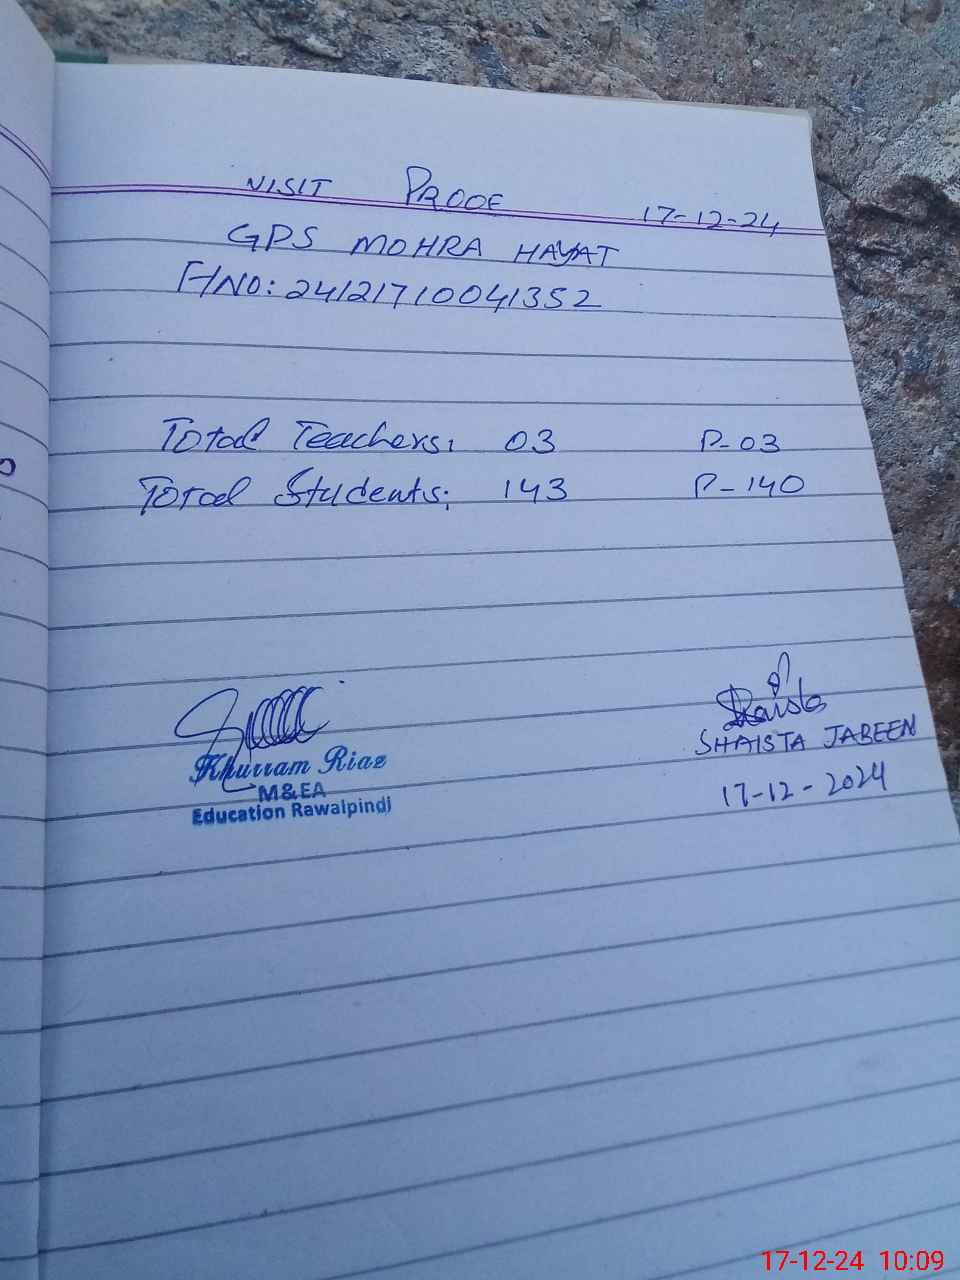 VISIT PROOF 17-12-24
GPS MOHRA HAYAT
A/NO: 24121710041352
Total Teachers: 03 P-03
Total Students: 143 P-140
Khurram Riaz
M&EA
Education Rawalpindi
Shaista
SHAISTA JABEEN
17-12-2024
17-12-24 10:09